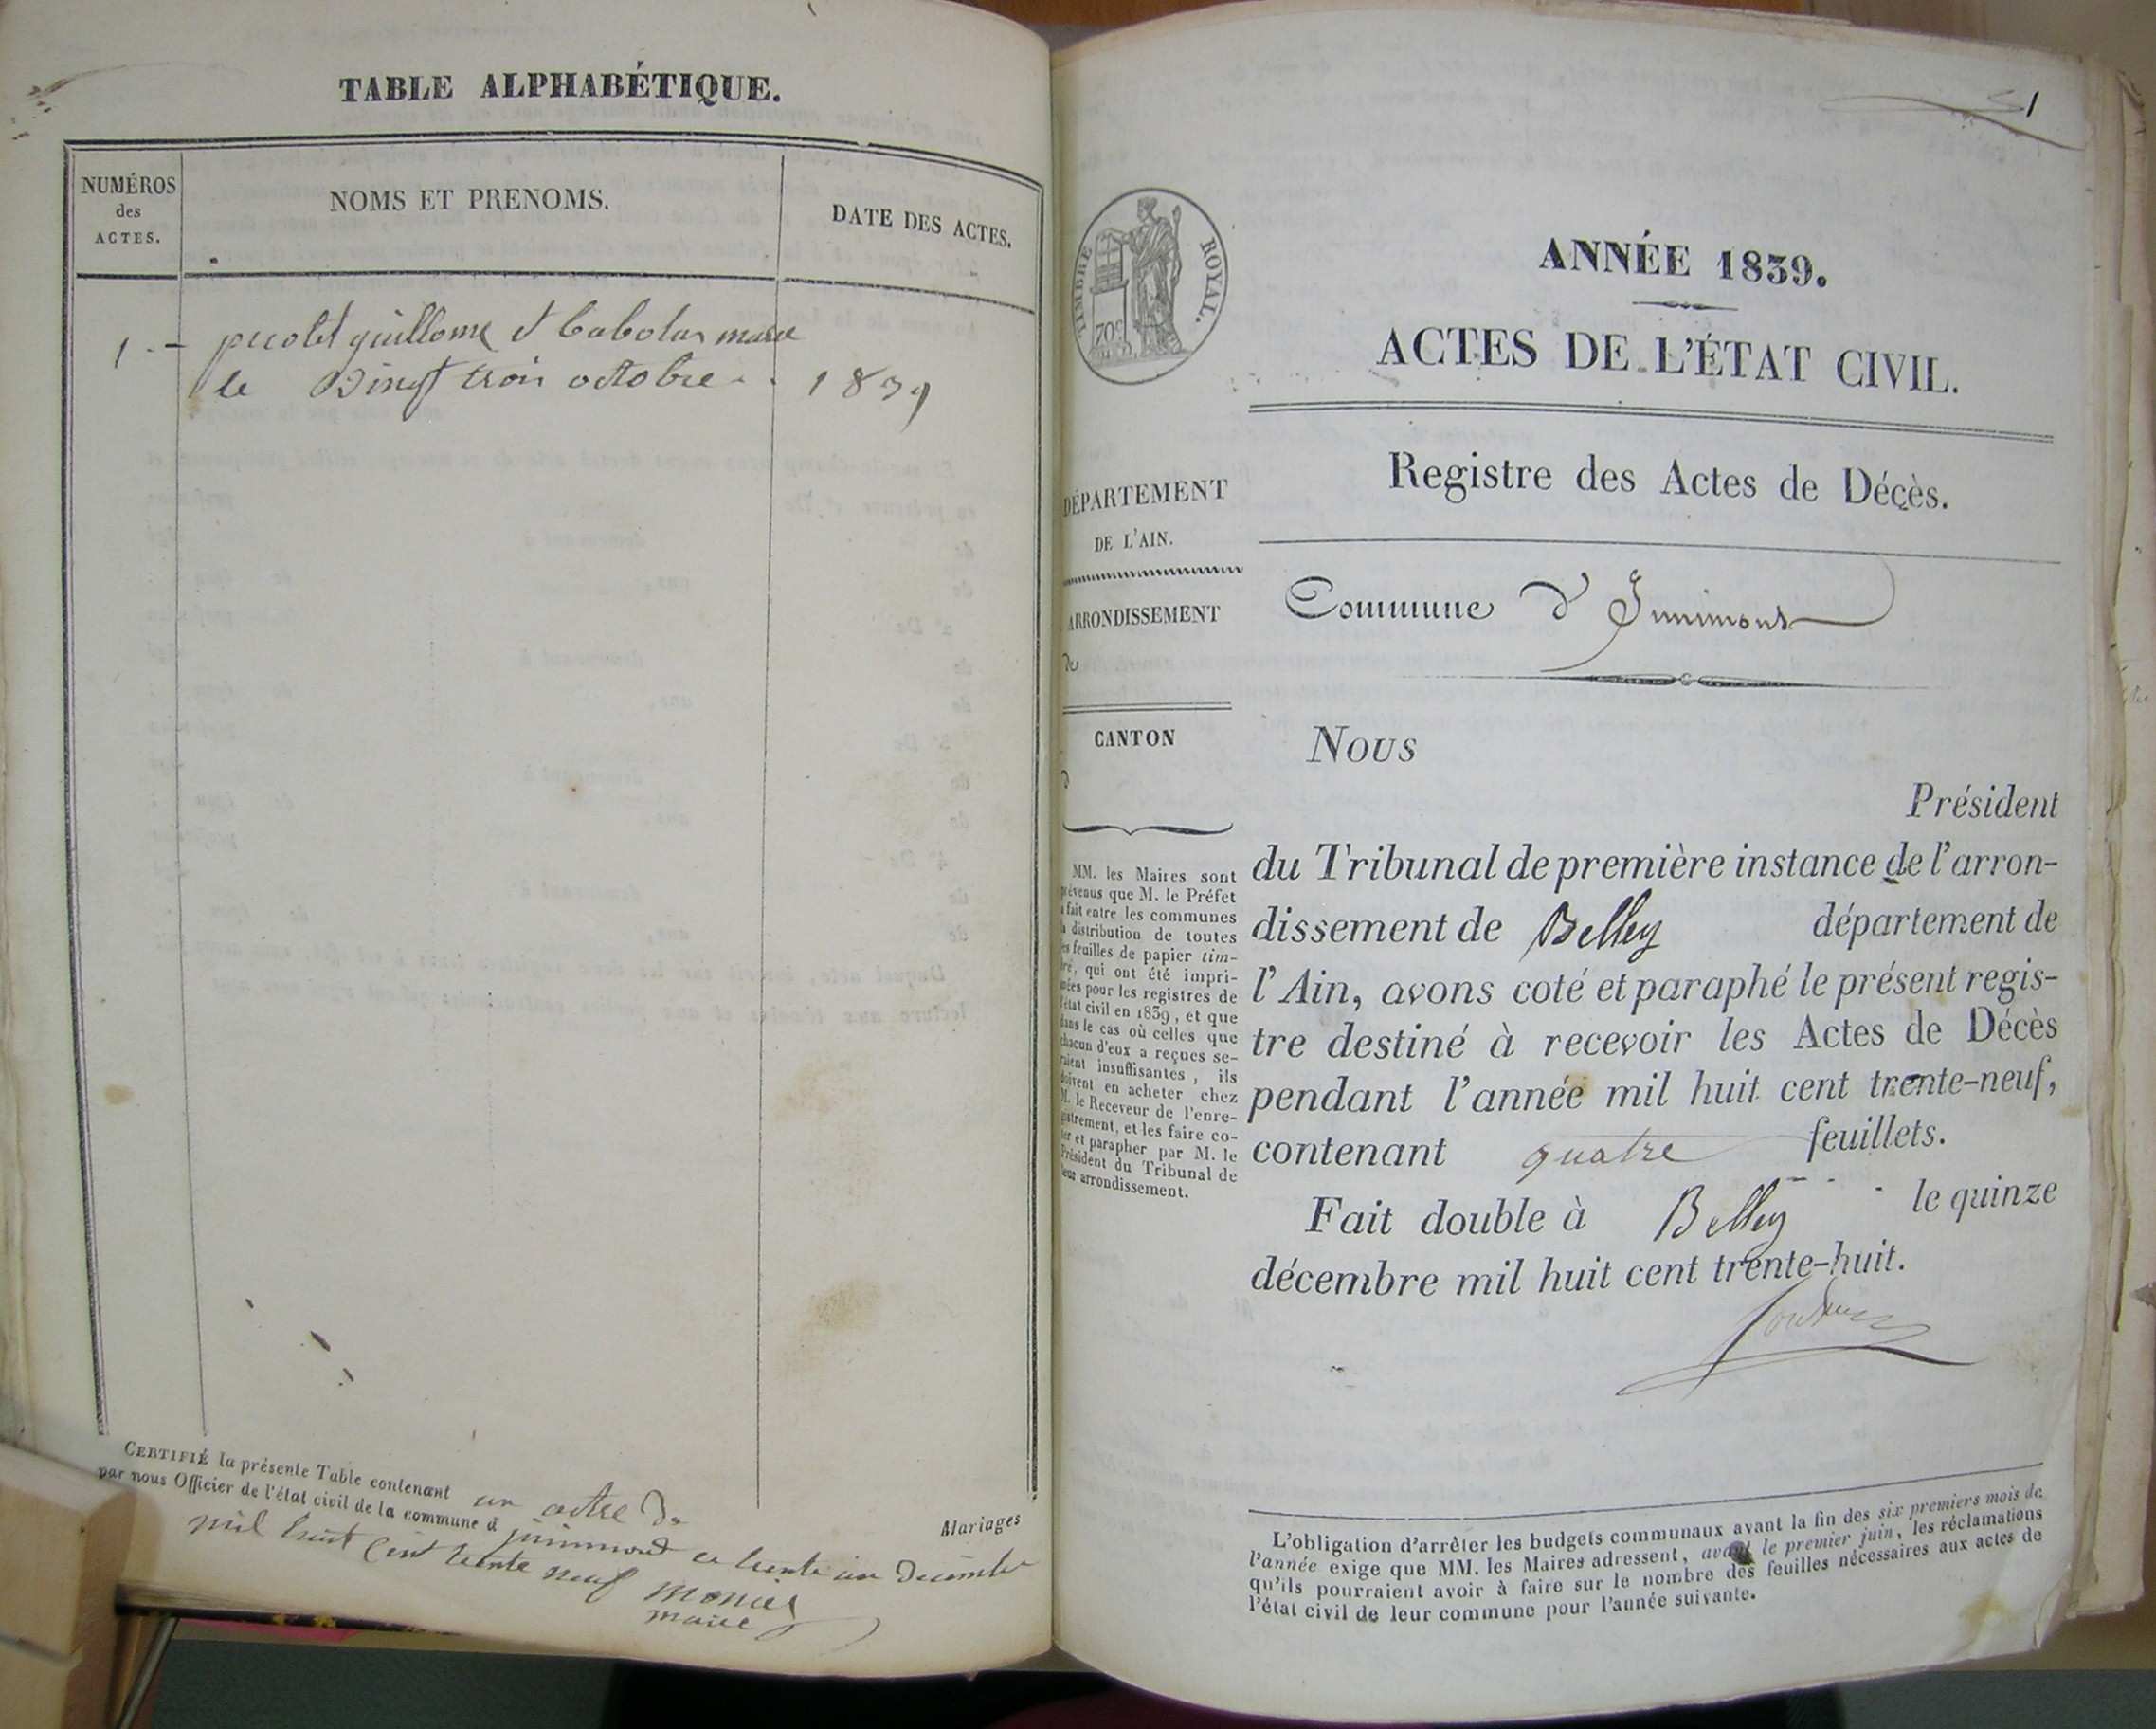 TABLE ALPHABÉTIQUE.
NUMÉROS
des
ACTES.
NOMS ET PRENOMS.
DATE DES ACTES.
1. - picolet guillome et babolas marie
le Vingt trois octobre - . 1839
CERTIFIÉ la présente Table contenant un actre de Mariages
par nous Officier de l'état civil de la commune d jnnimond ce trente un Decembre
mil huit Cent trente neuf
monier
maire
1
TIMBRE ROYAL.
70c
ANNÉE 1839.
ACTES DE L'ÉTAT CIVIL.
Registre des Actes de Décès.
DÉPARTEMENT
DE L'AIN.
ARRONDISSEMENT
de
CANTON
d
Commune d'Innimont
Nous
Président
du Tribunal de première instance de l'arron-
dissement de Belley département de
l'Ain, avons coté et paraphé le présent regis-
tre destiné à recevoir les Actes de Décès
pendant l'année mil huit cent trente-neuf,
contenant quatre feuillets.
Fait double à Belley - - - le quinze
décembre mil huit cent trente-huit.
MM. les Maires sont
prévenus que M. le Préfet
a fait entre les communes
la distribution de toutes
les feuilles de papier tim-
bré, qui ont été impri-
mées pour les registres de
l'état civil en 1839, et que
dans le cas où celles que
chacun d'eux a reçues se-
raient insuffisantes, ils
doivent en acheter chez
M. le Receveur de l'enre-
gistrement, et les faire co-
ter et parapher par M. le
Président du Tribunal de
leur arrondissement.
L'obligation d'arrêter les budgets communaux avant la fin des six premiers mois de
l'année exige que MM. les Maires adressent, avant le premier juin, les réclamations
qu'ils pourraient avoir à faire sur le nombre des feuilles nécessaires aux actes de
l'état civil de leur commune pour l'année suivante.